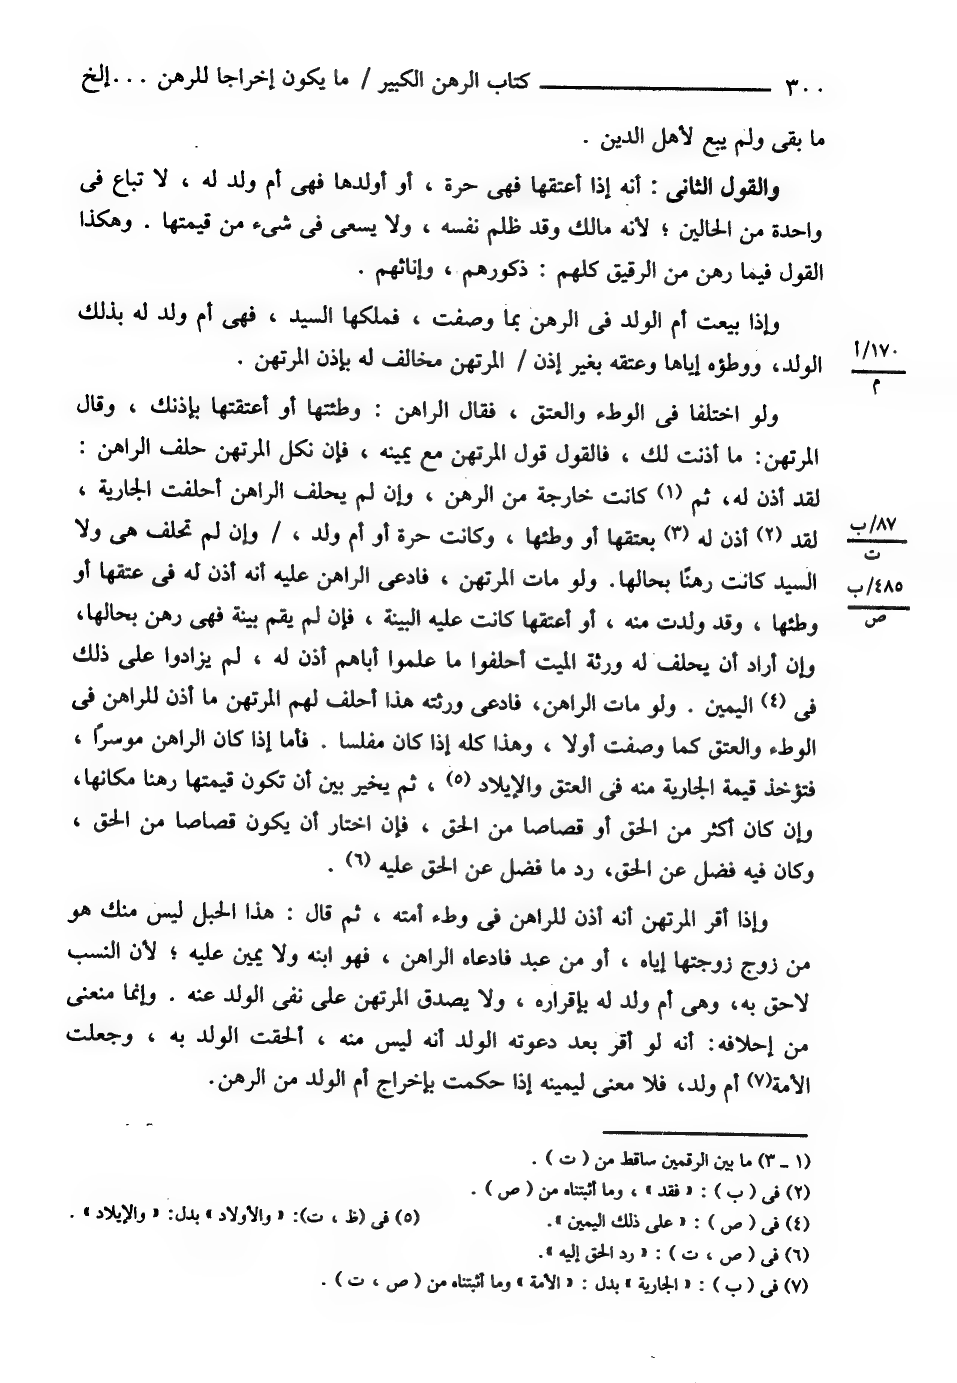 ٣٠٠ كتاب الرهن الكبير / ما يكون إخراجا للرهن . . . إلخ
ما بقى ولم يبع لأهل الدين .
والقول الثانى : أنه إذا أعتقها فهى حرة ، أو أولدها فهى أم ولد له ، لا تباع فى
واحدة من الحالين ؛ لأنه مالك وقد ظلم نفسه ، ولا يسعى فى شىء من قيمتها . وهكذا
القول فيما رهن من الرقيق كلهم : ذكورهم ، وإناثهم .
وإذا بيعت أم الولد فى الرهن بما وصفت ، فملكها السيد ، فهى أم ولد له بذلك
الولد، ووطؤه إياها وعتقه بغير إذن / المرتهن مخالف له بإذن المرتهن .
١٧٠/أ
م
ولو اختلفا فى الوطء والعتق ، فقال الراهن : وطئتها أو أعتقتها بإذنك ، وقال
المرتهن: ما أذنت لك ، فالقول قول المرتهن مع يمينه ، فإن نكل المرتهن حلف الراهن :
لقد أذن له، ثم (١) كانت خارجة من الرهن ، وإن لم يحلف الراهن أحلفت الجارية ،
لقد (٢) أذن له (٣) بعتقها أو وطئها ، وكانت حرة أو أم ولد ، / وإن لم تحلف هى ولا
٨٧/ب
ت
السيد كانت رهنًا بحالها. ولو مات المرتهن ، فادعى الراهن عليه أنه أذن له فى عتقها أو
٤٨٥/ب
ص
وطئها ، وقد ولدت منه ، أو أعتقها كانت عليه البينة ، فإن لم يقم بينة فهى رهن بحالها،
وإن أراد أن يحلف له ورثة الميت أحلفوا ما علموا أباهم أذن له ، لم يزادوا على ذلك
فى (٤) اليمين . ولو مات الراهن، فادعى ورثته هذا أحلف لهم المرتهن ما أذن للراهن فى
الوطء والعتق كما وصفت أولا ، وهذا كله إذا كان مفلسا . فأما إذا كان الراهن موسرًا ،
فتؤخذ قيمة الجارية منه فى العتق والإيلاد (٥) ، ثم يخير بين أن تكون قيمتها رهنا مكانها،
وإن كان أكثر من الحق أو قصاصا من الحق ، فإن اختار أن يكون قصاصا من الحق ،
وكان فيه فضل عن الحق، رد ما فضل عن الحق عليه (٦) .
وإذا أقر المرتهن أنه أذن للراهن فى وطء أمته ، ثم قال : هذا الحبل ليس منك هو
من زوج زوجتها إياه ، أو من عبد فادعاه الراهن ، فهو ابنه ولا يمين عليه ؛ لأن النسب
لاحق به، وهى أم ولد له بإقراره ، ولا يصدق المرتهن على نفى الولد عنه . وإنما منعنى
من إحلافه: أنه لو أقر بعد دعوته الولد أنه ليس منه ، ألحقت الولد به ، وجعلت
الأمة(٧) أم ولد، فلا معنى ليمينه إذا حكمت بإخراج أم الولد من الرهن.
(١ ــ ٣) ما بين الرقمين ساقط من ( ت ) .
(٢) فى ( ب ) : « فقد » ، وما أثبتناه من ( ص ) .
(٤) فى ( ص ) : « على ذلك اليمين ». (٥) فى (ظ ، ت): « والأولاد » بدل: « والإيلاد » .
(٦) فى ( ص ، ت ) : « رد الحق إليه ».
(٧) فى ( ب ) : « الجارية » بدل : « الأمة » وما أثبتناه من ( ص ، ت ) .